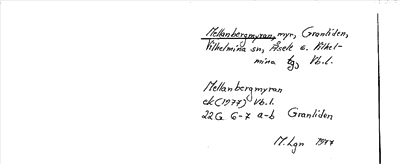 Mellanbergmyran, myr, Granliden,
Vilhelmina sn, Åsele o. Vilhel-
mina tg, Vb.l.
Mellanbergmyran
ek (1977) Vb.l.
22G 6-7 a-b Granliden
M. Lgn 1977